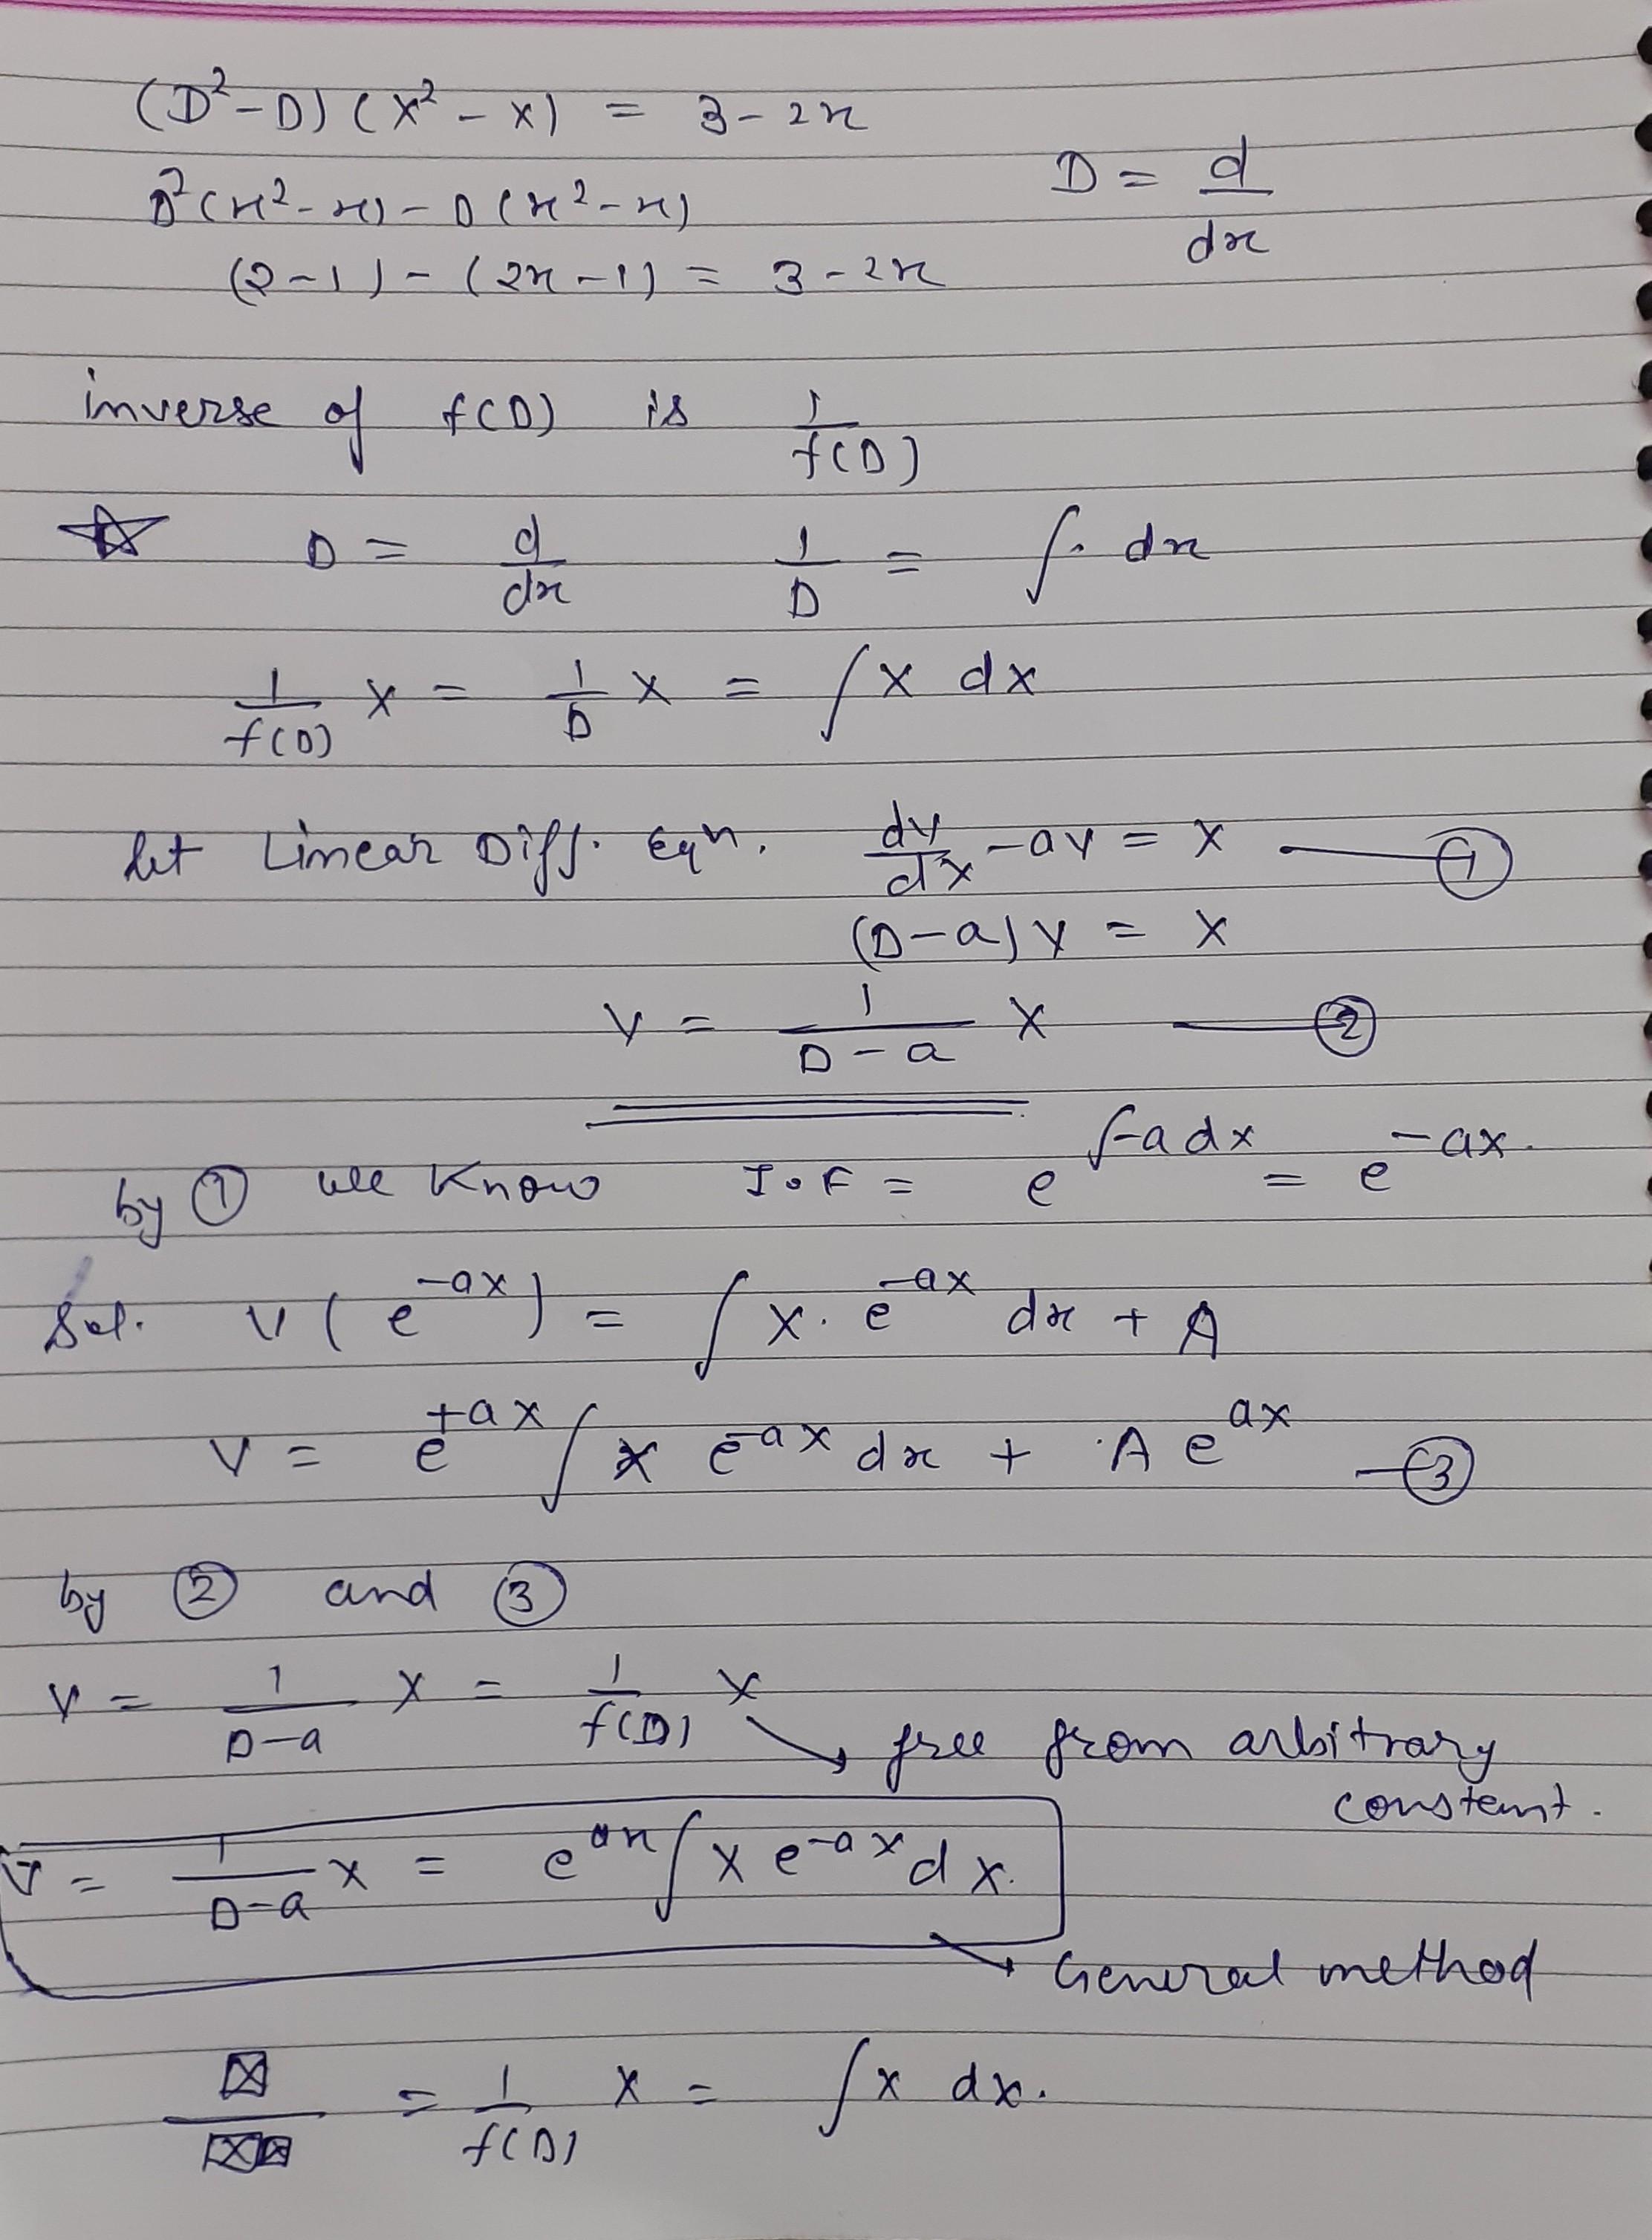 (D² - D) (x² - x) = 3 - 2x
D²(x² - x) - D(x² - x)
D = d/dx
(2 - 1) - (2x - 1) = 3 - 2x
inverse of f(D) is 1/f(D)
☆ D = d/dx 1/D = ∫· dx
1/f(D) X = 1/D X = ∫ X dx
let Linear Diff. Eqn. dy/dx - ay = X — ①
(D - a) y = X
y = 1/(D - a) X — ②
by ① we know I.F = e^∫-a dx = e^-ax
Sol. y (e^-ax) = ∫ X. e^-ax dx + A
y = e^+ax ∫ X e^-ax dx + A e^ax — ③
by ② and ③
y = 1/(D-a) X = 1/f(D) X → free from arbitrary
constant.
y = 1/(D-a) X = e^ax ∫ X e^-ax dx.
→ General method
= 1/f(D) X = ∫ X dx.